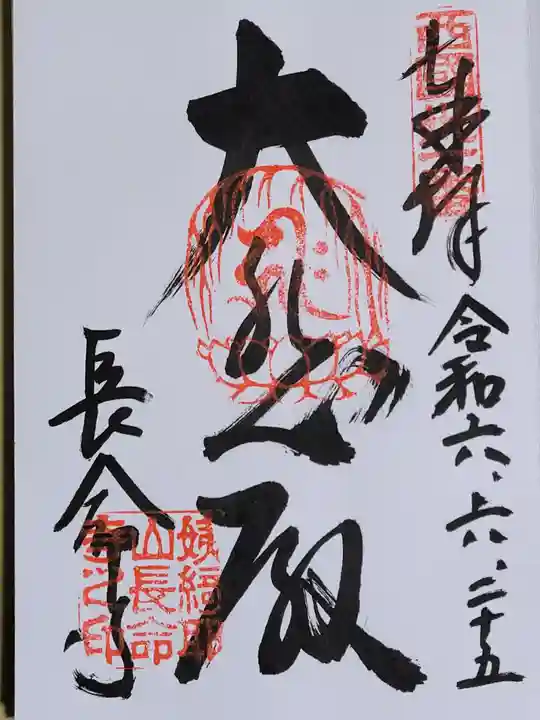 奉拝
令和六、六、二十五
大悲殿
長命寺
西國三十一番
姨綺耶
山長命
寺之印